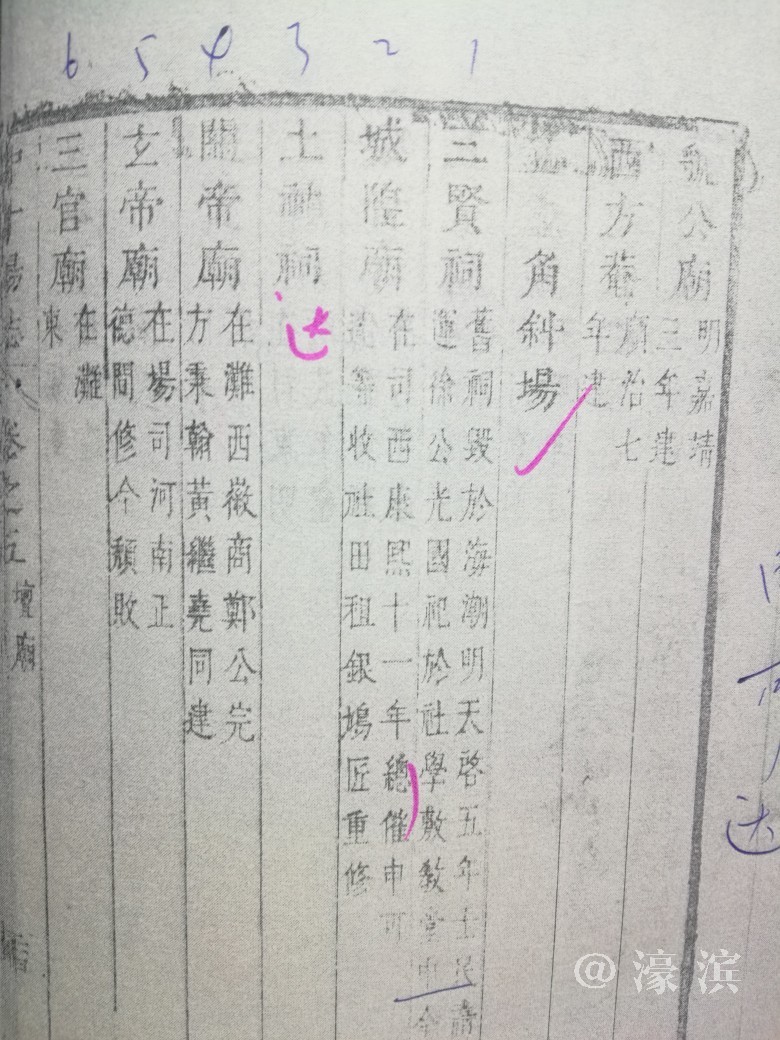 6. 5 4 3 2 1
公廟 明嘉靖
三年建
西方菴 順治七
年建
角斜場
三賢祠 舊祠毀於海潮明天啓五年士民請
運徐公光國祀於社學敷教堂中今
城隍廟 在司西康熙十一年總催申可
等收社田租銀塢匠重修
土神祠
达
關帝廟 在灘西徽商鄭公完
方秉翰黃繼堯同建
玄帝廟 在場司河南正
德間修今頹敗
三官廟 在灘
東
中十場志 卷之五 壇廟
达
@濠滨